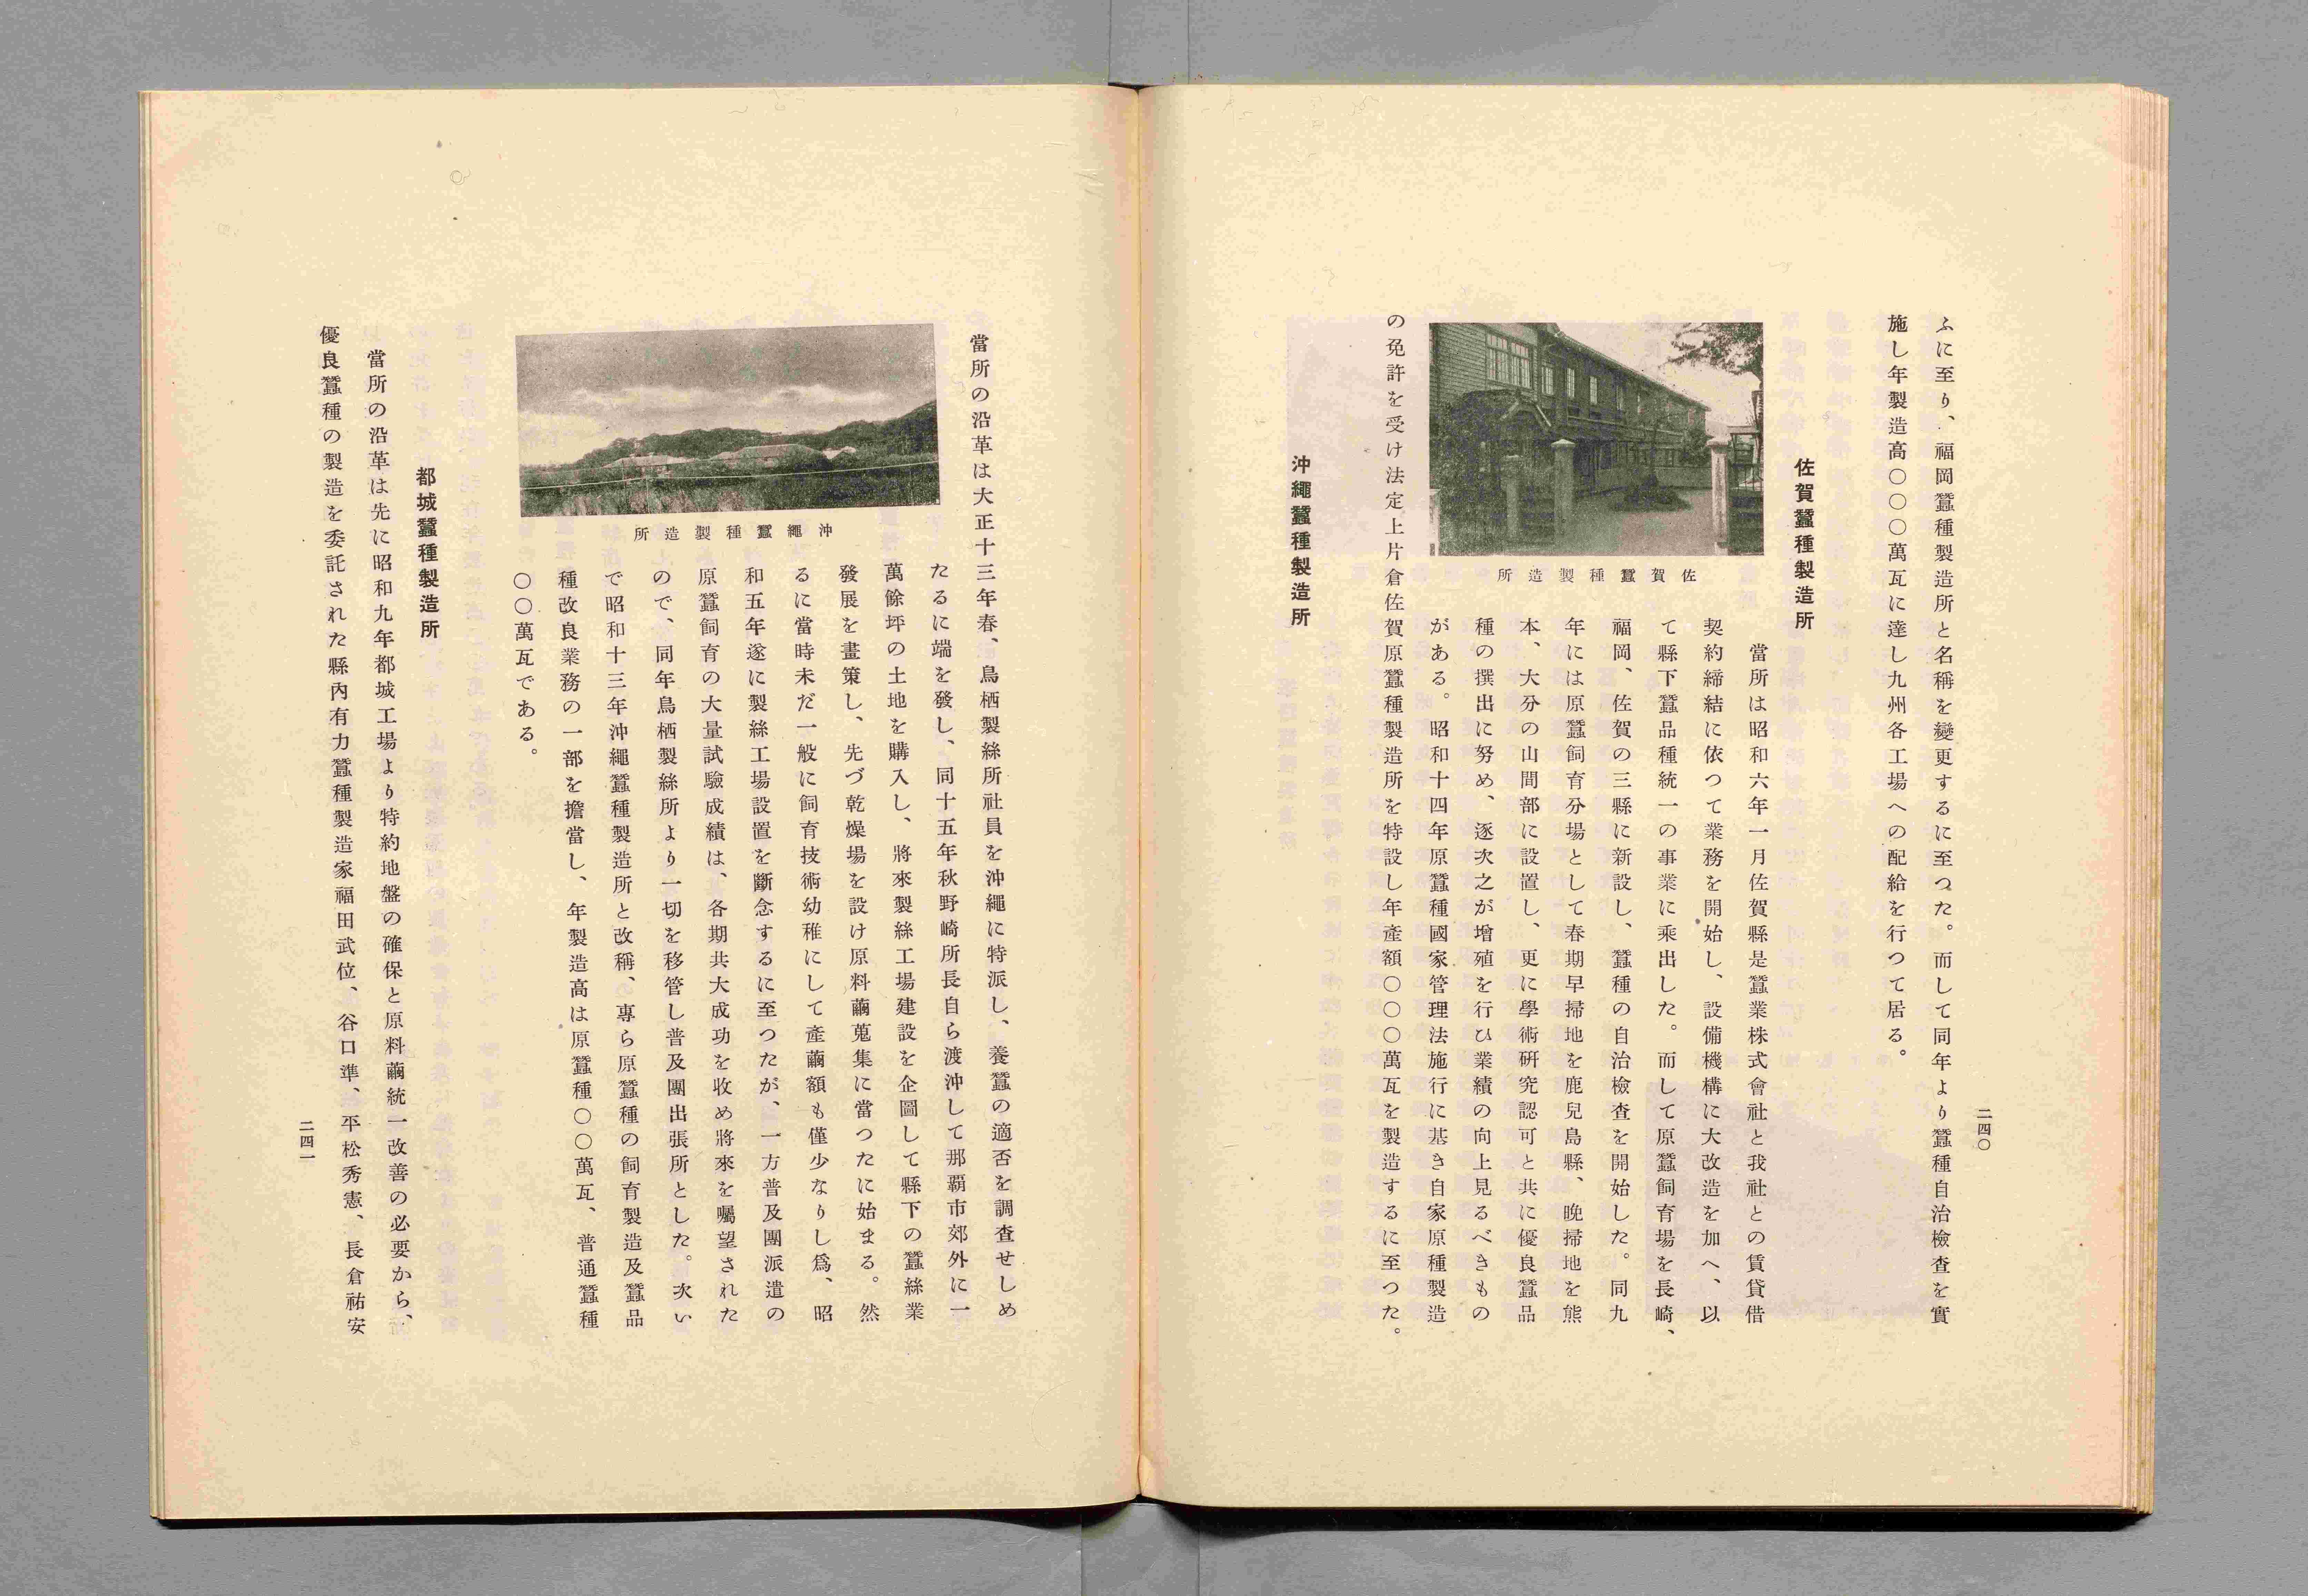 ふに至り、福岡蠶種製造所と名稱を變更するに至つた。而して同年より蠶種自治檢査を實
施し年製造高〇〇〇萬瓦に達し九州各工場への配給を行つて居る。
佐賀蠶種製造所
當所は昭和六年一月佐賀縣是蠶業株式會社と我社との賃貸借
契約締結に依つて業務を開始し、設備機構に大改造を加へ、以
て縣下蠶品種統一の事業に乘出した。而して原蠶飼育場を長崎、
福岡、佐賀の三縣に新設し、蠶種の自治檢査を開始した。同九
年には原蠶飼育分場として春期早掃地を鹿兒島縣、晚掃地を熊
本、大分の山間部に設置し、更に學術研究認可と共に優良蠶品
種の撰出に努め、逐次之が增殖を行ひ業績の向上見るべきもの
がある。昭和十四年原蠶種國家管理法施行に基き自家原種製造
の免許を受け法定上片倉佐賀原蠶種製造所を特設し年產額〇〇〇萬瓦を製造するに至つた。
所造製種蠶賀佐
沖繩蠶種製造所
二四〇
當所の沿革は大正十三年春、鳥栖製絲所社員を沖繩に特派し、養蠶の適否を調査せしめ
たるに端を發し、同十五年秋野崎所長自ら渡沖して那覇市郊外に一
萬餘坪の土地を購入し、將來製絲工場建設を企圖して縣下の蠶絲業
發展を畫策し、先づ乾燥場を設け原料繭蒐集に當つたに始まる。然
るに當時未だ一般に飼育技術幼稚にして產繭額も僅少なりし爲、昭
和五年遂に製絲工場設置を斷念するに至つたが、一方普及團派遣の
原蠶飼育の大量試驗成績は、各期共大成功を收め將來を囑望された
ので、同年鳥栖製絲所より一切を移管し普及團出張所とした。次い
で昭和十三年沖繩蠶種製造所と改稱、專ら原蠶種の飼育製造及蠶品
種改良業務の一部を擔當し、年製造高は原蠶種〇〇萬瓦、普通蠶種
〇〇萬瓦である。
所造製種蠶繩沖
都城蠶種製造所
當所の沿革は先に昭和九年都城工場より特約地盤の確保と原料繭統一改善の必要から、
優良蠶種の製造を委託された縣內有力蠶種製造家福田武位、谷口準、平松秀憲、長倉祐安
二四一